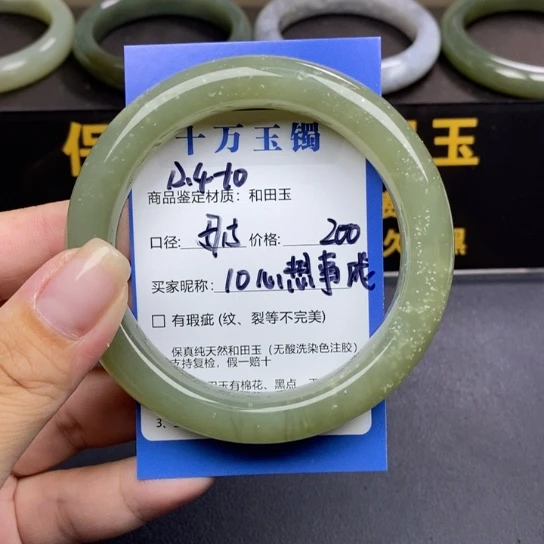 保 玉
十万玉镯
12.4-10
商品鉴定材质：和田玉
口径： 价格：200
买家昵称：10心想事成
□ 有瑕疵 (纹、裂等不完美)
保真纯天然和田玉（无酸洗染色注胶）
支持复检，假一赔十
玉有棉花、黑点
3、